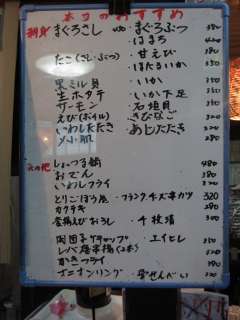 本日のおすすめ
刺身 まぐろさし 450 ・まぐろぶつ 380
・はまち 420
・たこ(さし・ぶつ) ・甘えび 380
・ほたるいか 350
・黒ミル貝 ・いか 380
・生ホタテ ・いか下足
・サーモン ・石垣貝 380
・えび(ボイル) ・きびなご
・いわしたたき ・あじたたき
・〆小肌
その他 しょっつる鍋 480
・おでん 380
・いわしフライ 350
・とりごぼう尾 ・フランクチーズ串カツ 320
・カクテキ 280
・釜揚えびおろし ・千枚漬 300
・肉団子ケチャップ ・エイヒレ
・レバ唐串揚(2本) 320
・かきフライ 350
・オニオンリング 350